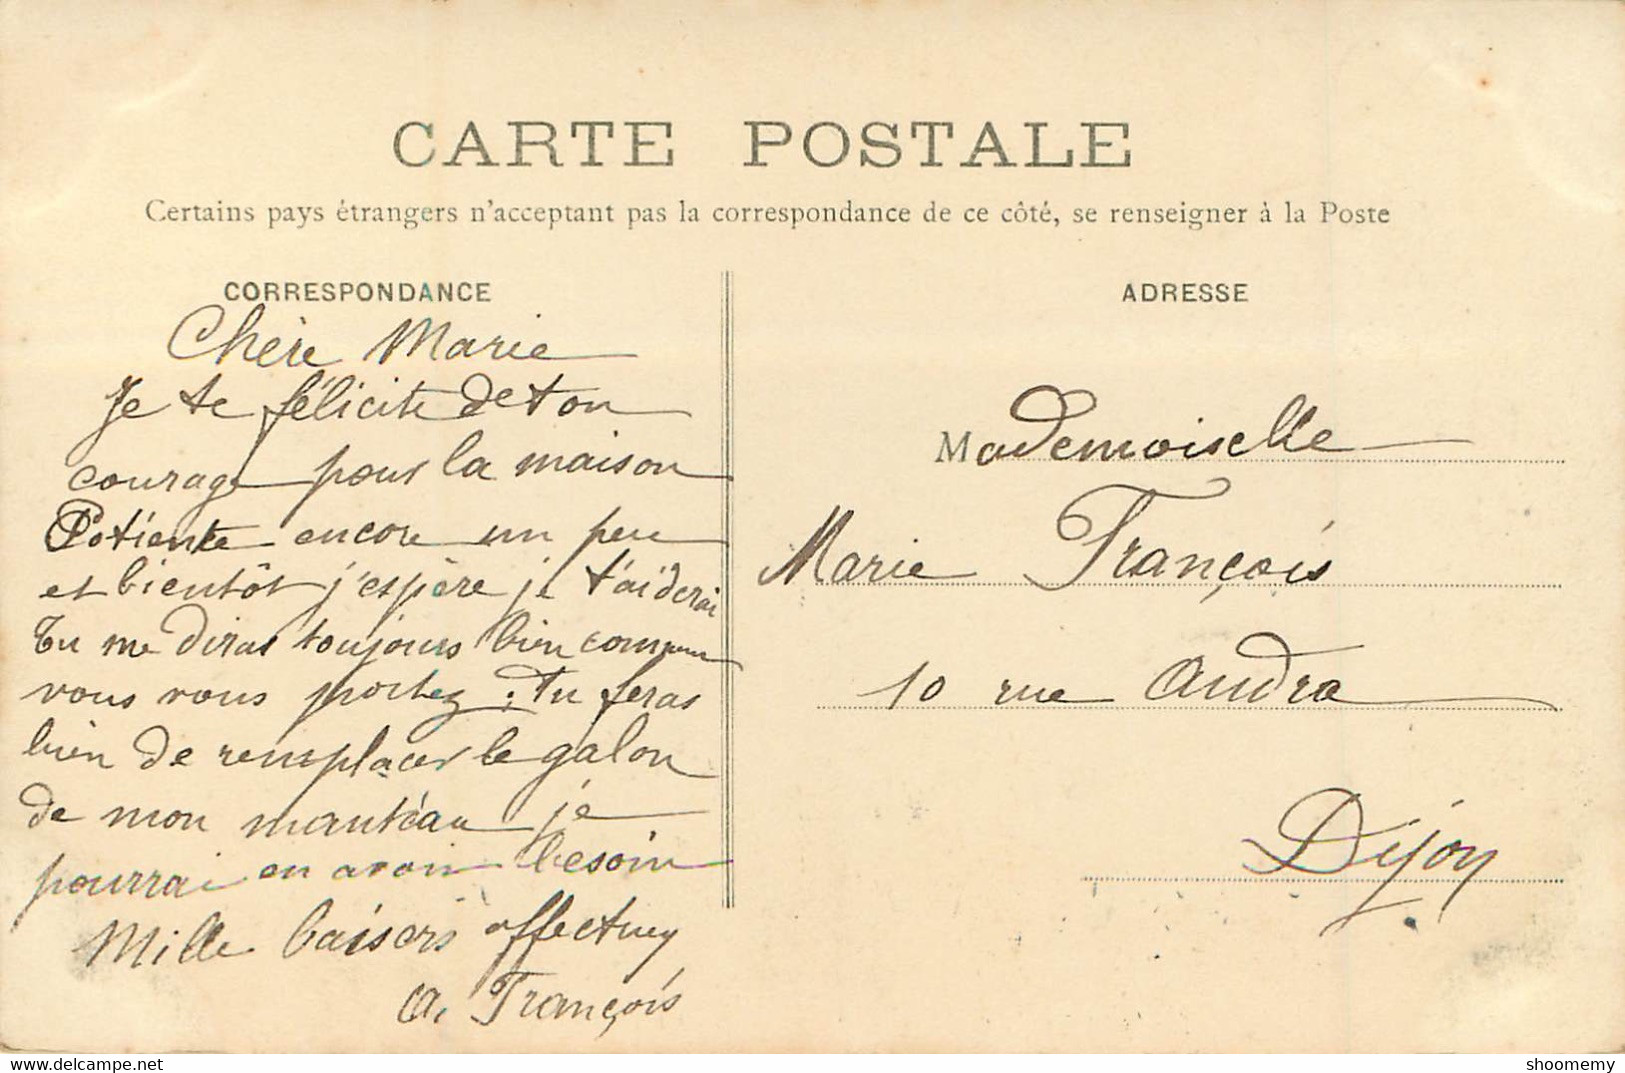 CARTE POSTALE
Certains pays étrangers n'acceptant pas la correspondance de ce côté, se renseigner à la Poste
CORRESPONDANCE
Chère Marie
Je te félicite de ton
courage pour la maison
Patiente encore un peu
et bientôt j'espère je t'aiderai
Tu me diras toujours bien comment
vous vous portez ; Tu feras
bien de remplacer le galon
de mon manteau je
pourrai en avoir besoin
Mille baisers affectueux
A. François
ADRESSE
Mademoiselle
Marie François
10 rue Audra
Dijon
www.delcampe.net
shoomemy